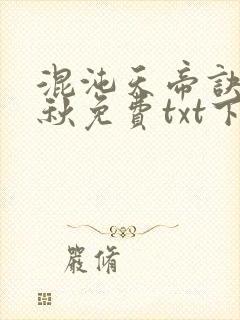 混沌天帝訣
秋免費txt下
嚴脩